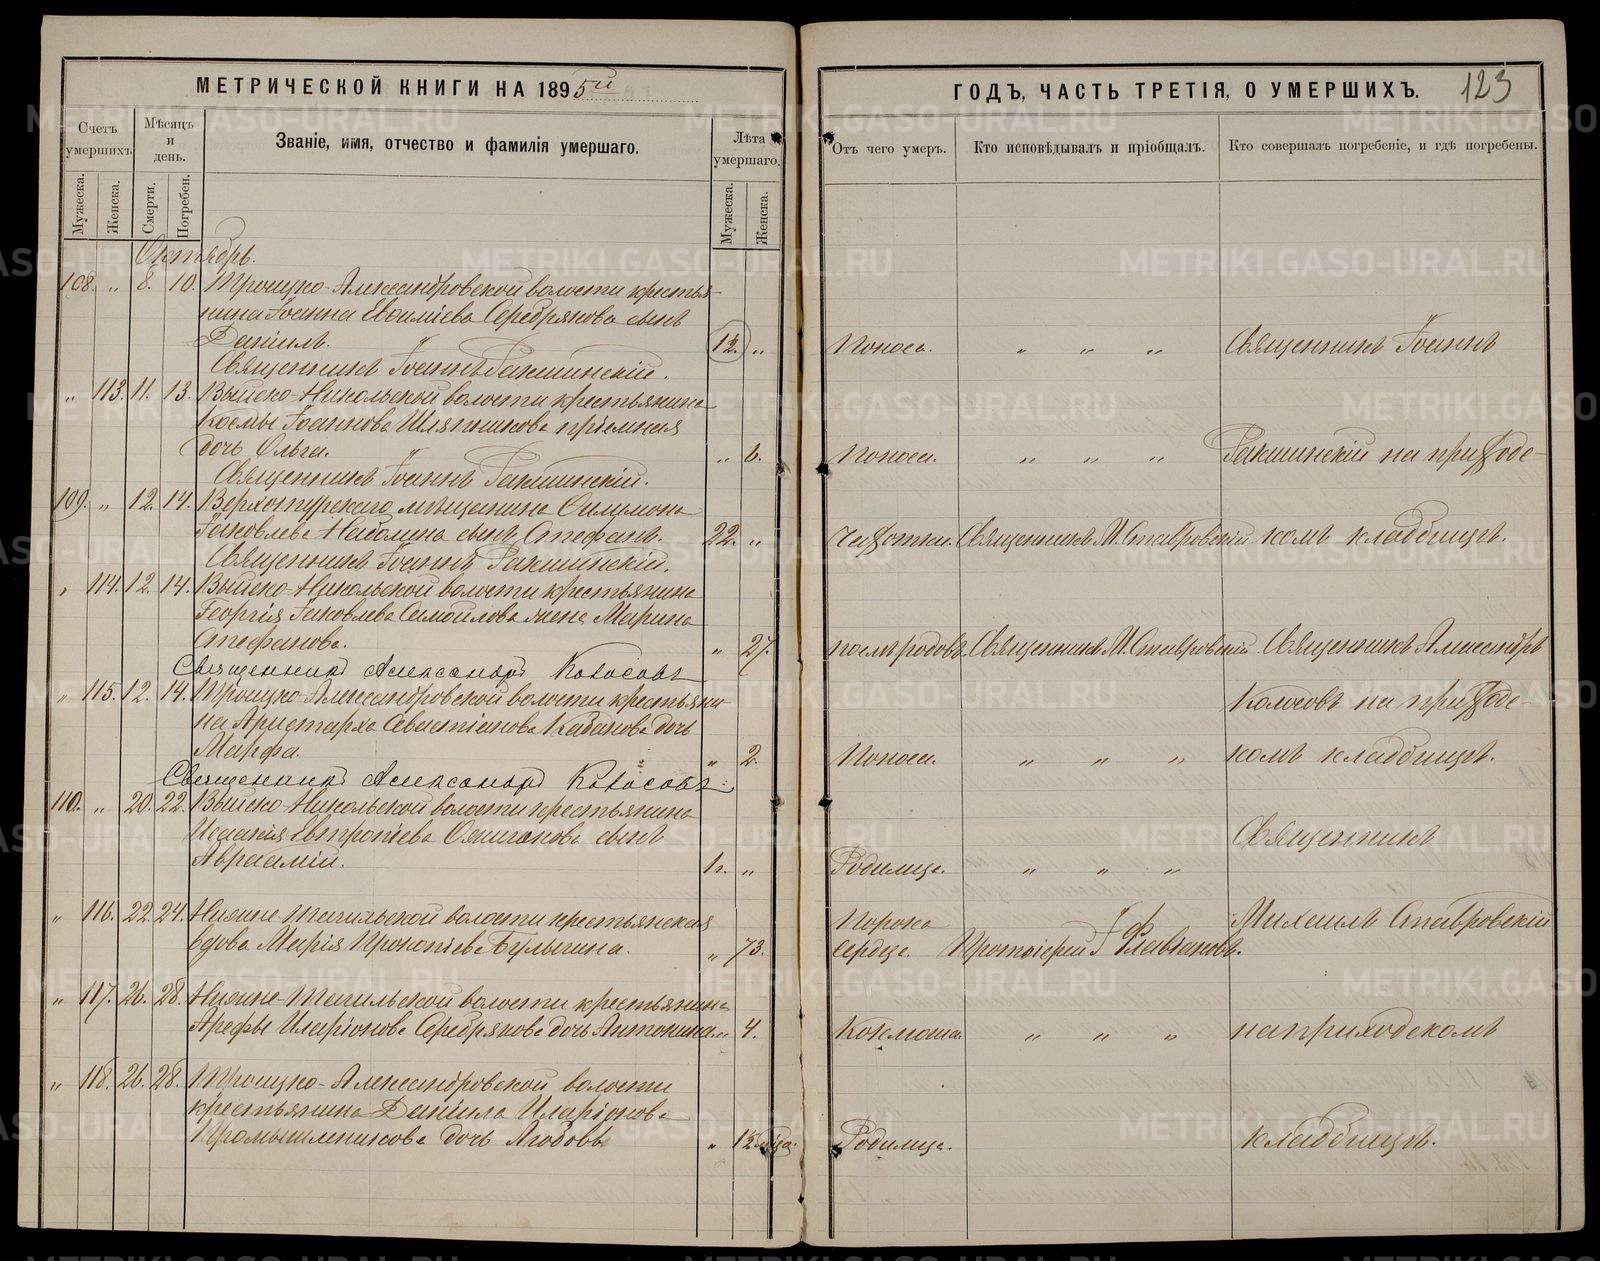 МЕТРИЧЕСКОЙ КНИГИ НА 1895й
ГОДЪ, ЧАСТЬ ТРЕТІЯ, О УМЕРШИХЪ.
123
Счетъ умершихъ.
Мѣсяцъ и день.
Званіе, имя, отчество и фамилія умершаго.
Лѣта умершаго.
Отъ чего умеръ.
Кто исповѣдывалъ и пріобщалъ.
Кто совершалъ погребеніе, и гдѣ погребены.
Мужеска.
Женска.
Смерти.
Погребен.
Мужеска.
Женска.
Октябрь.
108. " 8. 10. Троицко-Александровской волости крестья-
нина Іоанна Евсиліева Серебрякова сынъ
Даніилъ. 12. " Поноса. " " " Священникъ Іоаннъ
Священникъ Іоаннъ Ракшинскій.
" 113. 11. 13. Выйско-Никольской волости крестьянина
Космы Іоаннова Шляпникова пріемная
дочь Ольга. " 6. Поноса. " " " Ракшинскій на приходс-
Священникъ Іоаннъ Ракшинскій.
109. " 12. 14. Верхотурскаго мѣщанина Филимона
Іаковлева сынъ Стефанъ. 22. " Чахотки. Священникъ М. Ставровскій комъ кладбищѣ.
Священникъ Іоаннъ Ракшинскій.
" 114. 12. 14. Выйско-Никольской волости крестьянина
Георгія Іаковлева Самойлова жена Марина
Стефанова. " 27. послѣ родовъ. Священникъ М. Ставровскій. Священникъ Александръ
Священникъ Александръ Колосовъ
" 115. 12. 14. Троицко-Александровской волости крестьяни-
Колосовъ на приходс-
на Аристарха Севастіанова Казакова дочь
Марфа. " 2. Поноса. " " " комъ кладбищѣ.
Священникъ Александръ Колосовъ
110. " 20. 22. Выйско-Никольской волости крестьянина
Исаакія Евтропіева сынъ
Священникъ
Авраамій. " Родимца. " " "
" 116. 22. 24. Нижне-Тагильской волости крестьянская
Порока
Михаилъ Ставровскій
вдова Марія Прокопіева Булыгина. " 73. сердца. Протоіерей І. Флавіановъ.
" 117. 26. 28. Нижне-Тагильской волости крестьянина
Арефы Иларіонова Серебрякова дочь Антонина. " 4. Коклюша. " " " на приходскомъ
" 118. 26. 28. Троицко-Александровской волости
крестьянина Даніила Иларіонова
Промышленникова дочь Любовь " Родимца. кладбищѣ.
METRIKI.GASO-URAL.RU